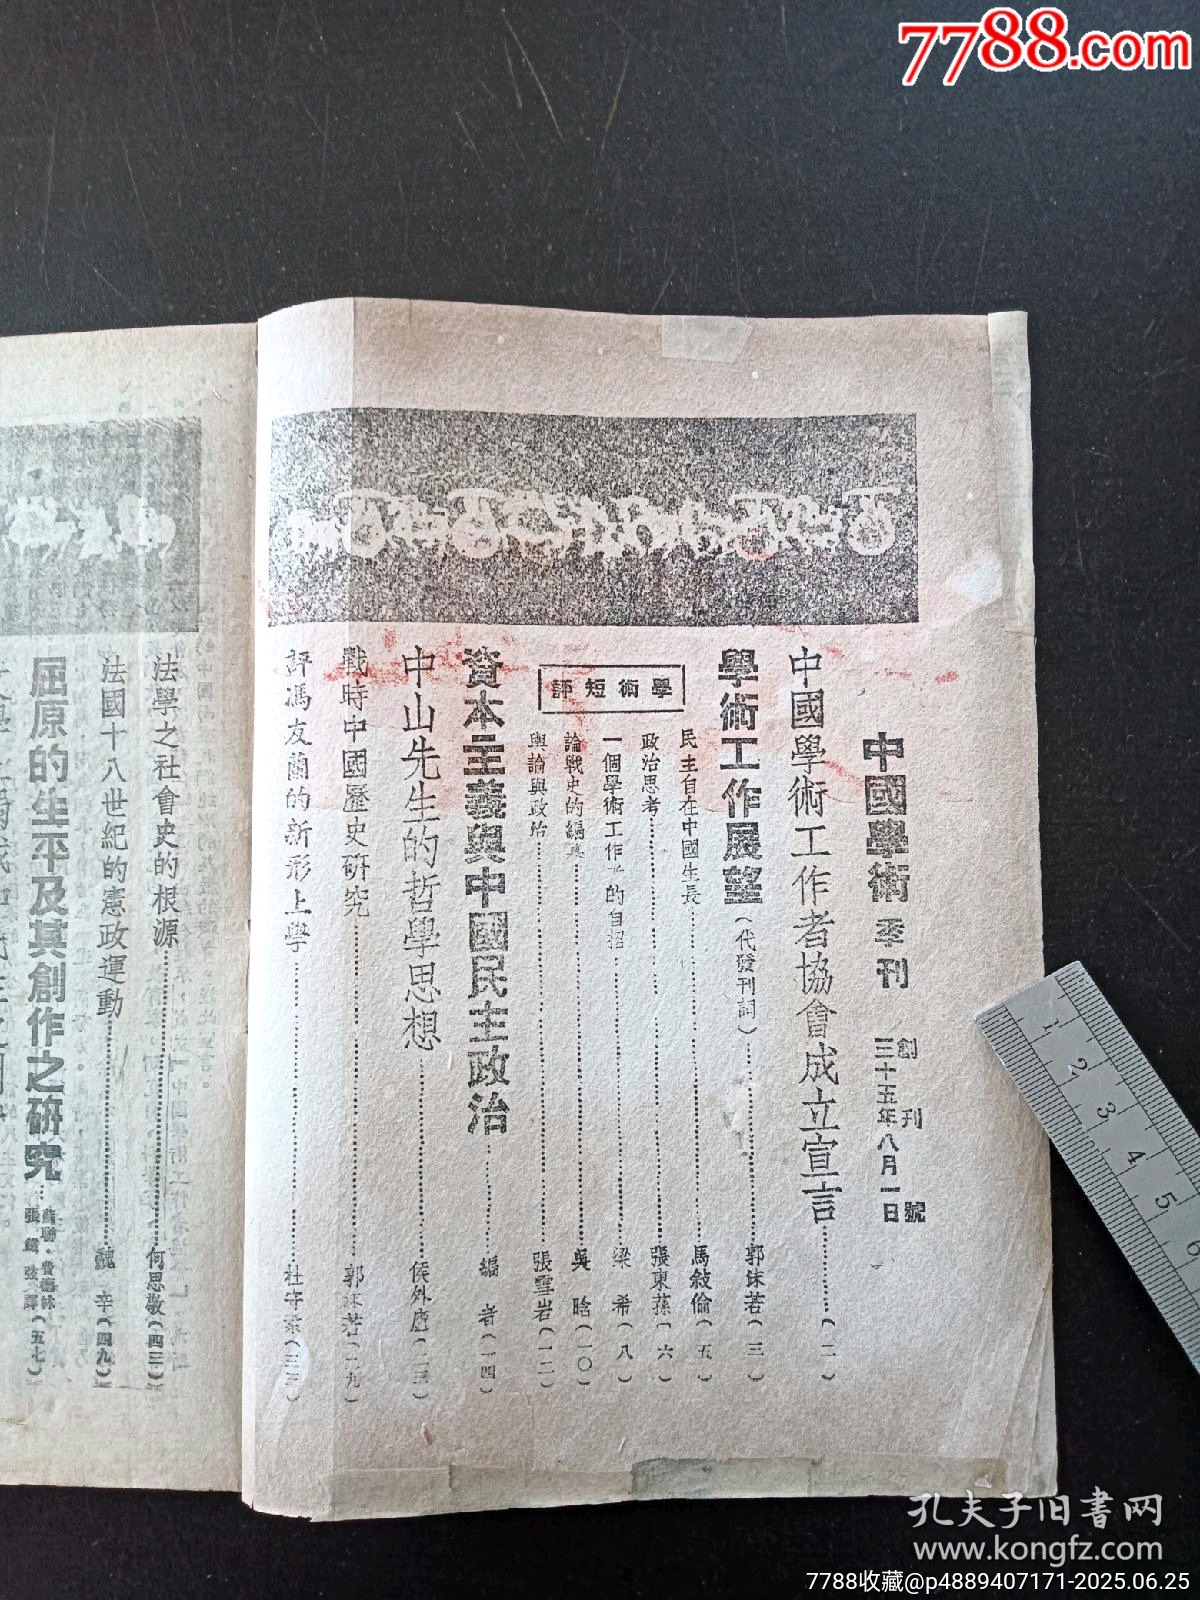 7788.com
中國學術 季刊
創刊號
三十五年八月一日
中國學術工作者協會成立宣言…………(二)
學術工作展望(代發刊詞)…………郭沫若(三)
學術短評
民主自在中國生長…………馬敍倫(五)
政治思考…………張東蓀(六)
一個學術工作者的自招…………梁希(八)
論戰史的編纂…………吳晗(一〇)
輿論與政治…………張雪岩(一二)
資本主義與中國民主政治…………編者(一四)
中山先生的哲學思想…………侯外廬(二三)
戰時中國歷史研究…………郭沫若(二九)
評馮友蘭的新形上學…………杜守素(三三)
法學之社會史的根源…………何思敬(四三)
法國十八世紀的憲政運動…………魏辛(四九)
屈原的生平及其創作之研究…張鐵弦譯(五七)
1 2 3 4 5 6
孔夫子旧書网
www.kongfz.com
7788收藏@p4889407171-2025.06.25